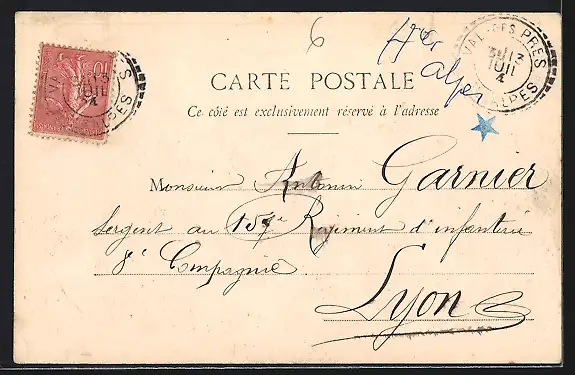 6
Htes
Alpes
VAL-DES PRES
13
JUIL
4
ALPES
10
CARTE POSTALE
Ce côté est exclusivement réservé à l'adresse
Monsieur Antonin Garnier
Sergent au 159e Régiment d'infanterie
8e Compagnie
Lyon